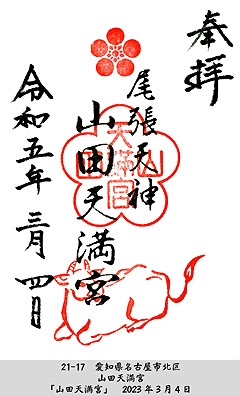 奉拝
尾張天神
山田天満宮
天満宮
山田
令和五年 三月 四日
21-17 愛知県名古屋市北区
山田天満宮
「山田天満宮」 2023年3月4日